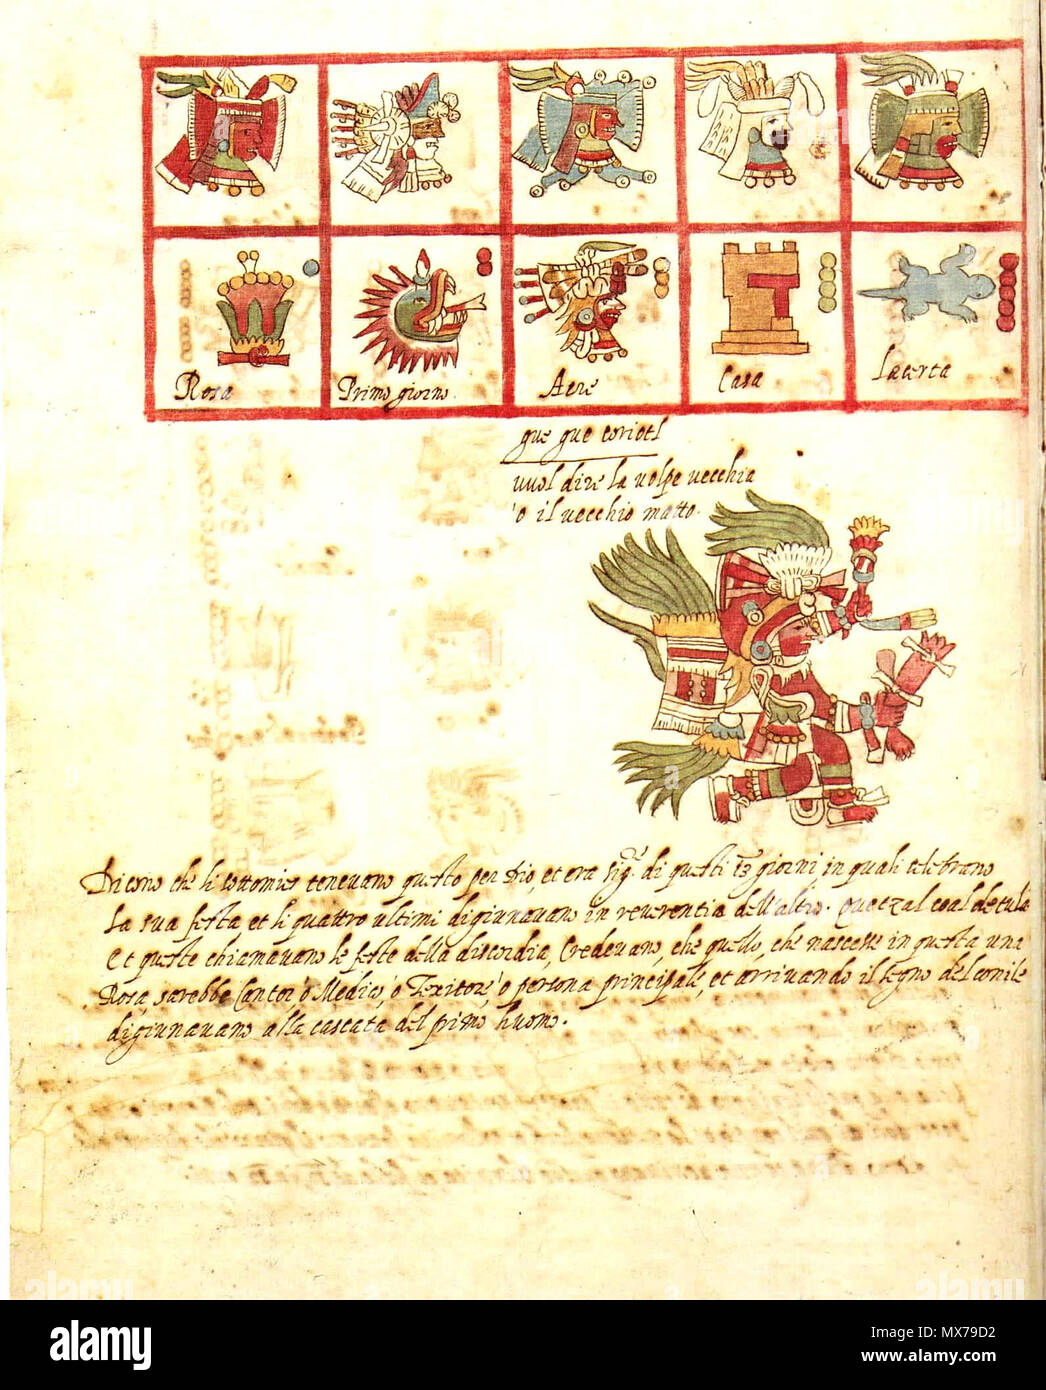 Rosa Primo giorno. Aere Casa Lacerta
gue gue coriotl
vuol dire la volpe vecchia
o il vecchio matto.
Dicono che li tenevano questo per Dio et era sig.r di questi 13 giorni in quali celebrano
La sua festa et li quattro ultimi digiunavano in reverentia dell'altro. Quetzalcoal de tula
et queste chiamavano le feste della discordia, Credevano, che quello, che nascesse in questa una
Rosa, sarebbe Cantor' o Medico, o Texitore, o persona principale, et arrivando il segno del
digiunavano alla cascata del primo huomo.
alamy
alamy
alamy
a
alamy
Image ID: MX79D2
www.alamy.com